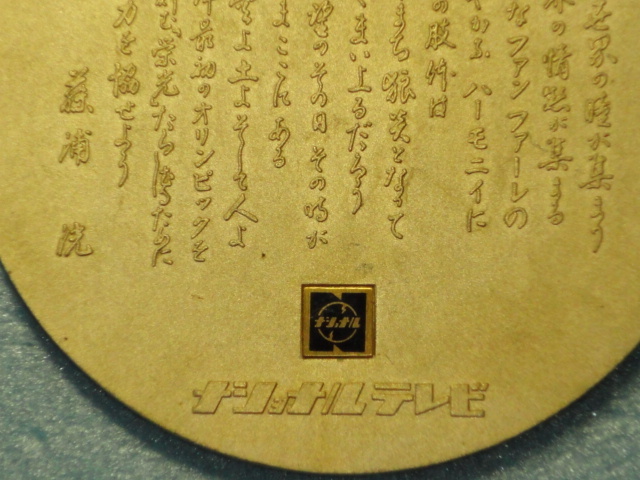 世界の瞳が集まう
の情熱が集まる
なファンファーレの
ハーモニイに
の肢体は
まち狼炎となって
まい上るだろう
そのその日その時が
よここにある
よ土よそして人よ
最初のオリンピックを
栄光たらしめるために
力を協せよう
藤浦 洸
ナショナル
ナショナルテレビ